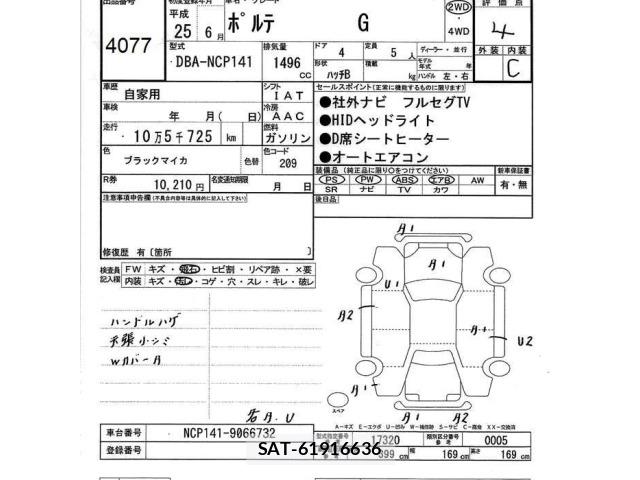 出品番号
4077
平成 25年 6月
ポルテ G
2WD
4WD
評価点
4
外装 内装
C
型式
DBA-NCP141
排気量
1496 cc
ドア 4
定員 5人
ディーラー・並行
形状 ハッチB
積載 kg
モデル年式 年
ハンドル 左・右
車歴 自家用
シフト IAT
車検 年 月(日)
冷房 AAC
走行 10万5千725 km
燃料 ガソリン
色 ブラックマイカ 色替
色コード 209
R券 10,210円
名変通知期限 月 日
セールスポイント(正常に機能するものに限ります)
●社外ナビ フルセグTV
●HIDヘッドライト
●D席シートヒーター
●オートエアコン
装備品(純正品に限り○をつけてください)
PS PW ABS エアB AW
SR ナビ TV カワ
新車保証書
有・無
後日品
注意事項申告欄(不具合内容等は具体的に記入して下さい)
修復歴 有〔箇所 〕
検査員記入欄
FW キズ・飛石・ヒビ割・リペア跡・×要
内装 キズ・汚レ・コゲ・穴・スレ・キレ・破レ
ハンドルハゲ
天張小シミ
Wカバーa
各A.U
A1
A1
U1
A2
A1
U2
A1
A1
A2
スペア
A−キズ E−エクボ U−凹み W−補修跡 S−サビ C−腐蝕 XX−交換済
車台番号 NCP141-9066732
登録番号
型式指定番号 17320
類別区分番号 0005
399 cm
幅 169 cm
高さ 169 cm
SAT-61916636